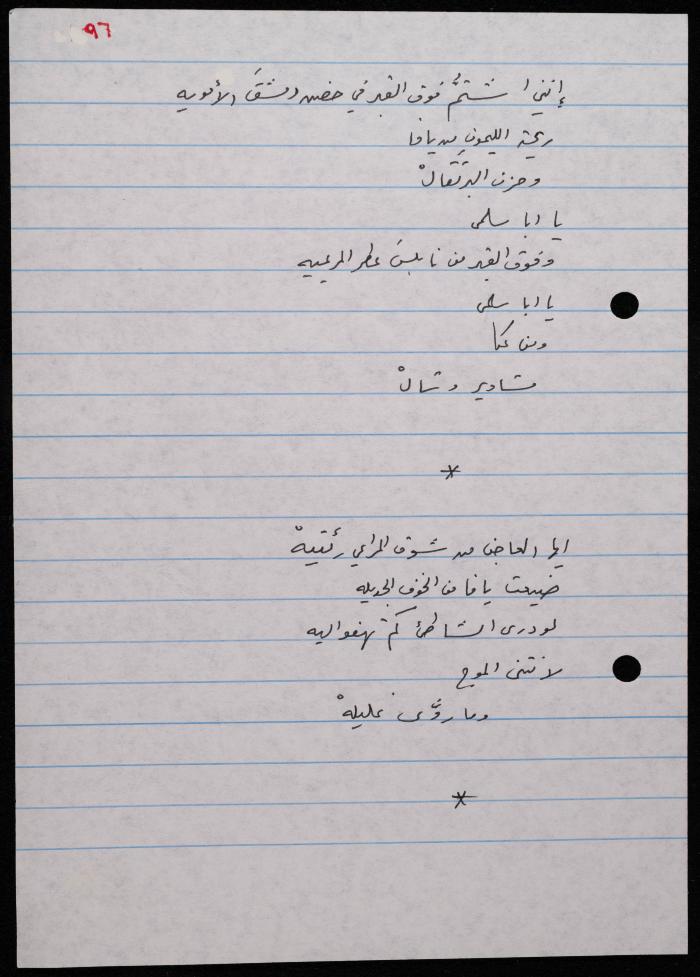 ٩٦
إنني اشتمُّ فوق القبر في حضن دمشقَ الأمويه
ريحة الليمونِ من يافا
وحزن البرتقالْ
يا ابا سلمى
وفوق القبر من نابلسَ عطر المريميه
يا ابا سلمى
ومن عكا
مشاوير وشالْ
*
ايها من شوق رئتيهْ
ضيعت يافا من الخوف الجديله
لو درى الشاطئ كم تهفو اليه
لانثنى الموج
وما روَّى غليلهْ
*